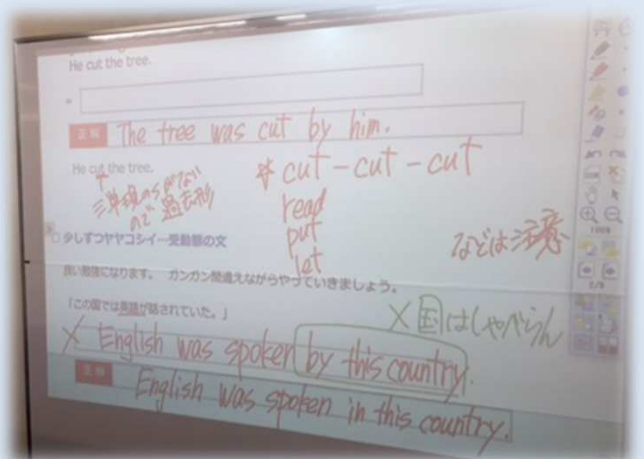 He cut the tree.
=
正解 The tree was cut by him.
He cut the tree.
↑
三単現のsがない
ので 過去形
* cut - cut - cut
read
put
let
などは注意
少しずつヤヤコシイ…受動態の文
良い勉強になります。 ガンガン間違えながらやっていきましょう。
「この国では英語が話されていた。」
× 国はしゃべらん
× English was spoken by this country.
正解 English was spoken in this country.